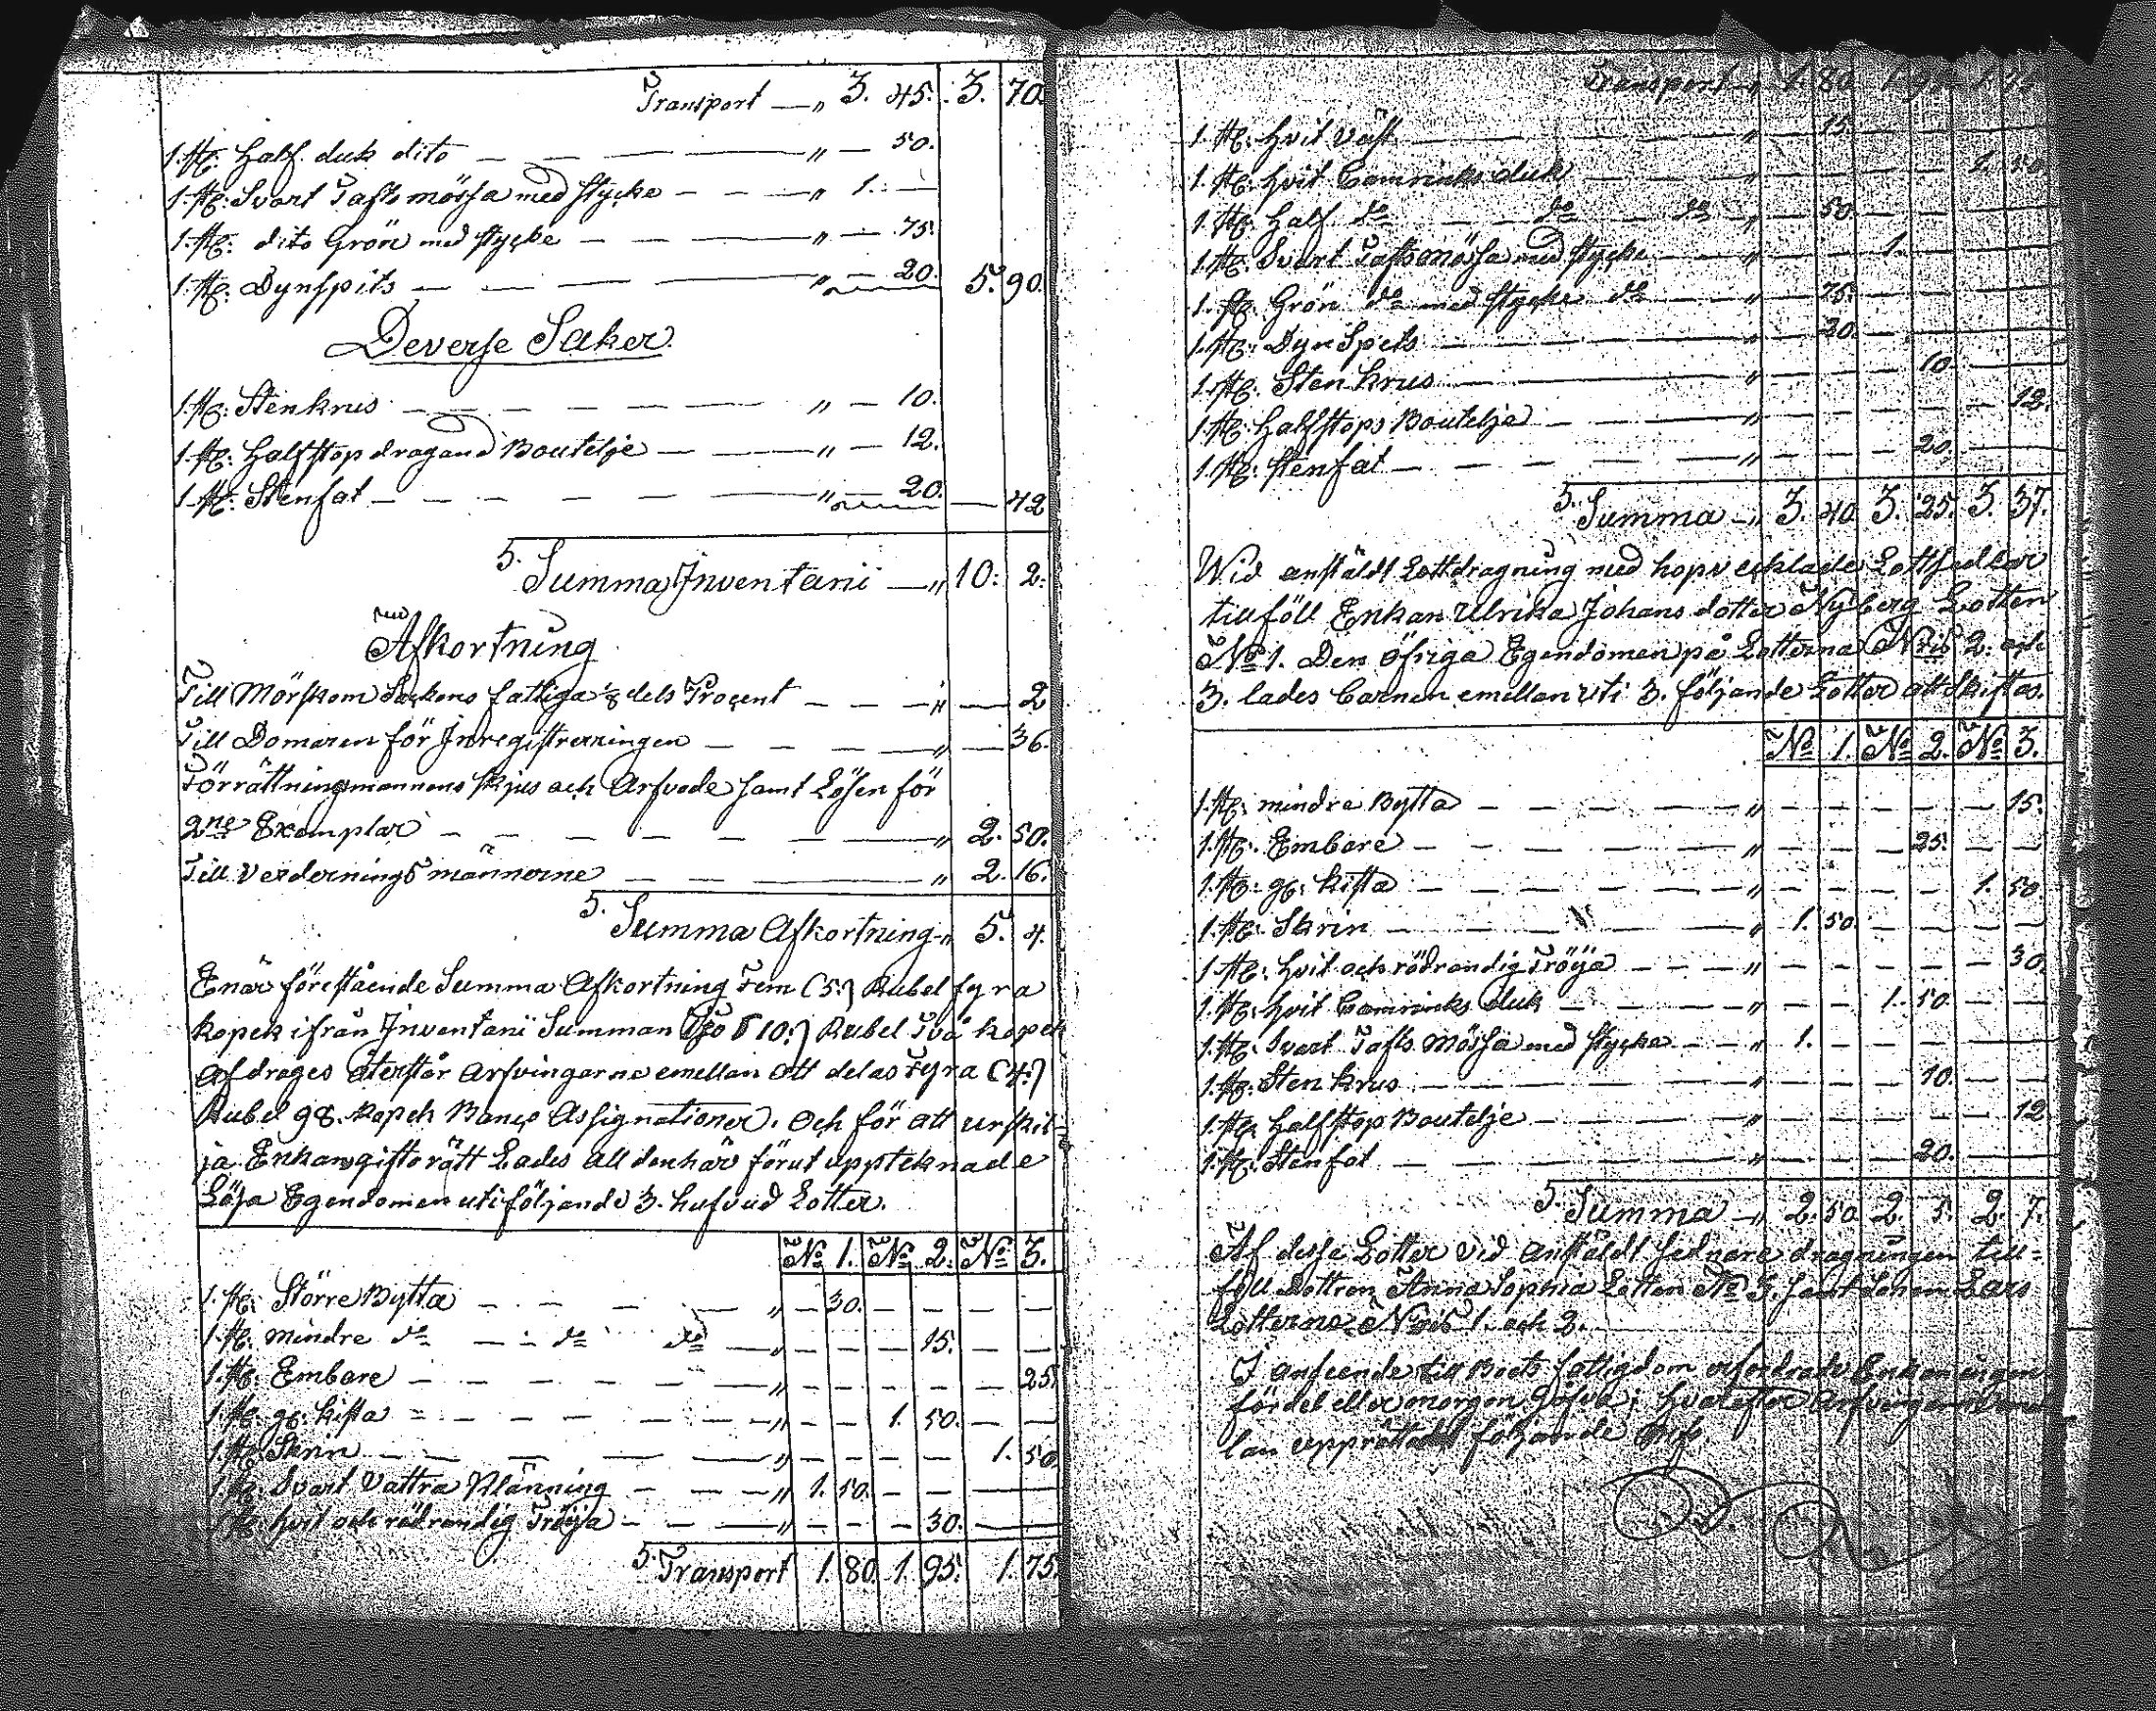 Transport — „ 3. 45. 3. 70.
1. st: Half. duk dito — — — „ — 50.
1. st: Svart Taftsmössa med stycke — — — „ 1. —
1. st: dito Grön med stycke — — — „ — 75.
1. st: Dynspits — — — „ — 20. 5. 90.
Deverse Saker.
1. st: Stenkrus — — — — — „ — 10.
1. st: Halfstop dragand Boutelje — — „ — 12.
1. st: Stenfat — — — — — „ — 20. — 42
S. Summa Inventarii — „ 10: 2:
Afkortning
Till Mörskom Sockens fattiga ⅛ dels Procent — — — „ — 2
Till Domaren för Inregistreringen — — — — „ — 36.
Förrättningsmannens skjus och Arfvode samt Lösen för
2ne Exemplar — — — — — — „ 2. 50.
Till Verderningsmännerne — — — „ 2. 16.
S. Summa Afkortning „ 5. 4.
Enär förestående Summa Afkortning Fem (5:) Rubel fyra
kopek ifrån Inventarii Summan Tio (10:) Rubel Två kopek
afdrages återstår Arfvingarne emellan att delas Fyra (4:)
Rubel 98. kopek Banco Assignationer. Och för att urskil-
ja Enkans giftorätt Lades all den här förut uppteknade
Lösa Egendomen uti följande 3. hufvud Lotter.
No 1. No 2. No 3.
1. st: Större Bytta — — — — „ — 30. — — — —
1. st: mindre do — — do do — „ — — — 15. — —
1. st: Embare — — — — — „ — — — — — 25.
1. st: gl: kista — — — — — „ — — 1. 50. — —
1. st: Skrin — — — — — „ — — — — 1. 50.
1. st: Svart Vattra Klänning — — — „ 1. 50. — — — —
1. st: hvit och rödrandig Tröja — — — „ — — — 30. — —
S. Transport 1. 80. 1. 95. 1. 75.
Transport — „ 1. 80. 1. 95. 1. 75.
1. st: Hvit Väst — — — „ — 15. — — — —
1. st: hvit Camricks duk — — — „ — — — — 1. 50.
1. st: Half. do — — do — do „ — 50. — — — —
1. st: Svart Taftsmössa med stycke — — „ — — 1. — — —
1. st: Grön do med stycke do — „ — 75. — — — —
1. st: Dyn Spets — — — „ — 20. — — — —
1. st: Sten krus — — — „ — — — 10. — —
1. st: Halfstops Boutelje — — — „ — — — — — 12.
1. st: Stenfat — — — — — „ — — — 20. — —
S. Summa — „ 3. 40. 3. 25. 3. 37.
Wid anstäldt Lottdragning med hopvecklade Lottsedlar
tillföll Enkan Ulrika Johans dotter Nyberg Lotten
No 1. Den öfriga Egendomen på Lotterna Nris 2. och
3. lades barnen emellan uti 3. följande Lotter att skiftas.
No 1. No 2. No 3.
1. st: mindre Bytta — — — — „ — — — — — 15.
1. st: Embare — — — — — „ — — — 25. — —
1. st: gl: kista — — — — — „ — — — — 1. 50.
1. st: Skrin — — — — „ 1. 50. — — — —
1. st: hvit och rödrandig Tröija — — — „ — — — — — 30.
1. st: hvit Camricks duk — — — — „ — — 1. 50. — —
1. st: Svart Tafts Mössa med stycke — — „ 1. — — — — —
1. st: Sten krus — — — — „ — — — 10. — —
1. st: Halfstop Boutelje — — — „ — — — — — 12.
1. st: Stenfat — — — — „ — — — 20. — —
S. Summa — „ 2. 50. 2. 5. 2. 7.
Af desse Lotter vid anstäldt sednare dragningen till-
föll Dottren Anna Sophia Lotten No 3. samt Sonen Lars
Lotterne Nris 1. och 2.
I anseende till Boets fattigdom Enkan ingen
fördel eller morgon gåfva; hvarefter Arfvingarne
lan upprättades följande